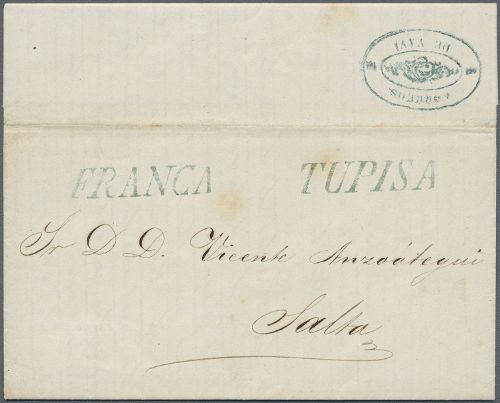 DE YAVI
CORREOS
FRANCA TUPISA
Sr D D. Vicente Anzoátegui
Salta